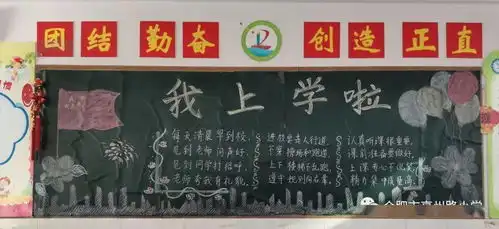 团结 勤奋 创造 正直
我上学啦
每天清晨早到校，
见到老师问声好，
见到同学打招呼，
老师夸我有礼貌。
进校要走人行道，
下课操场和跑道，
上下楼梯不乱跑，
遵守规则向右靠。
认真听课很重要，
课前准备要做好，
上课专心不说笑，